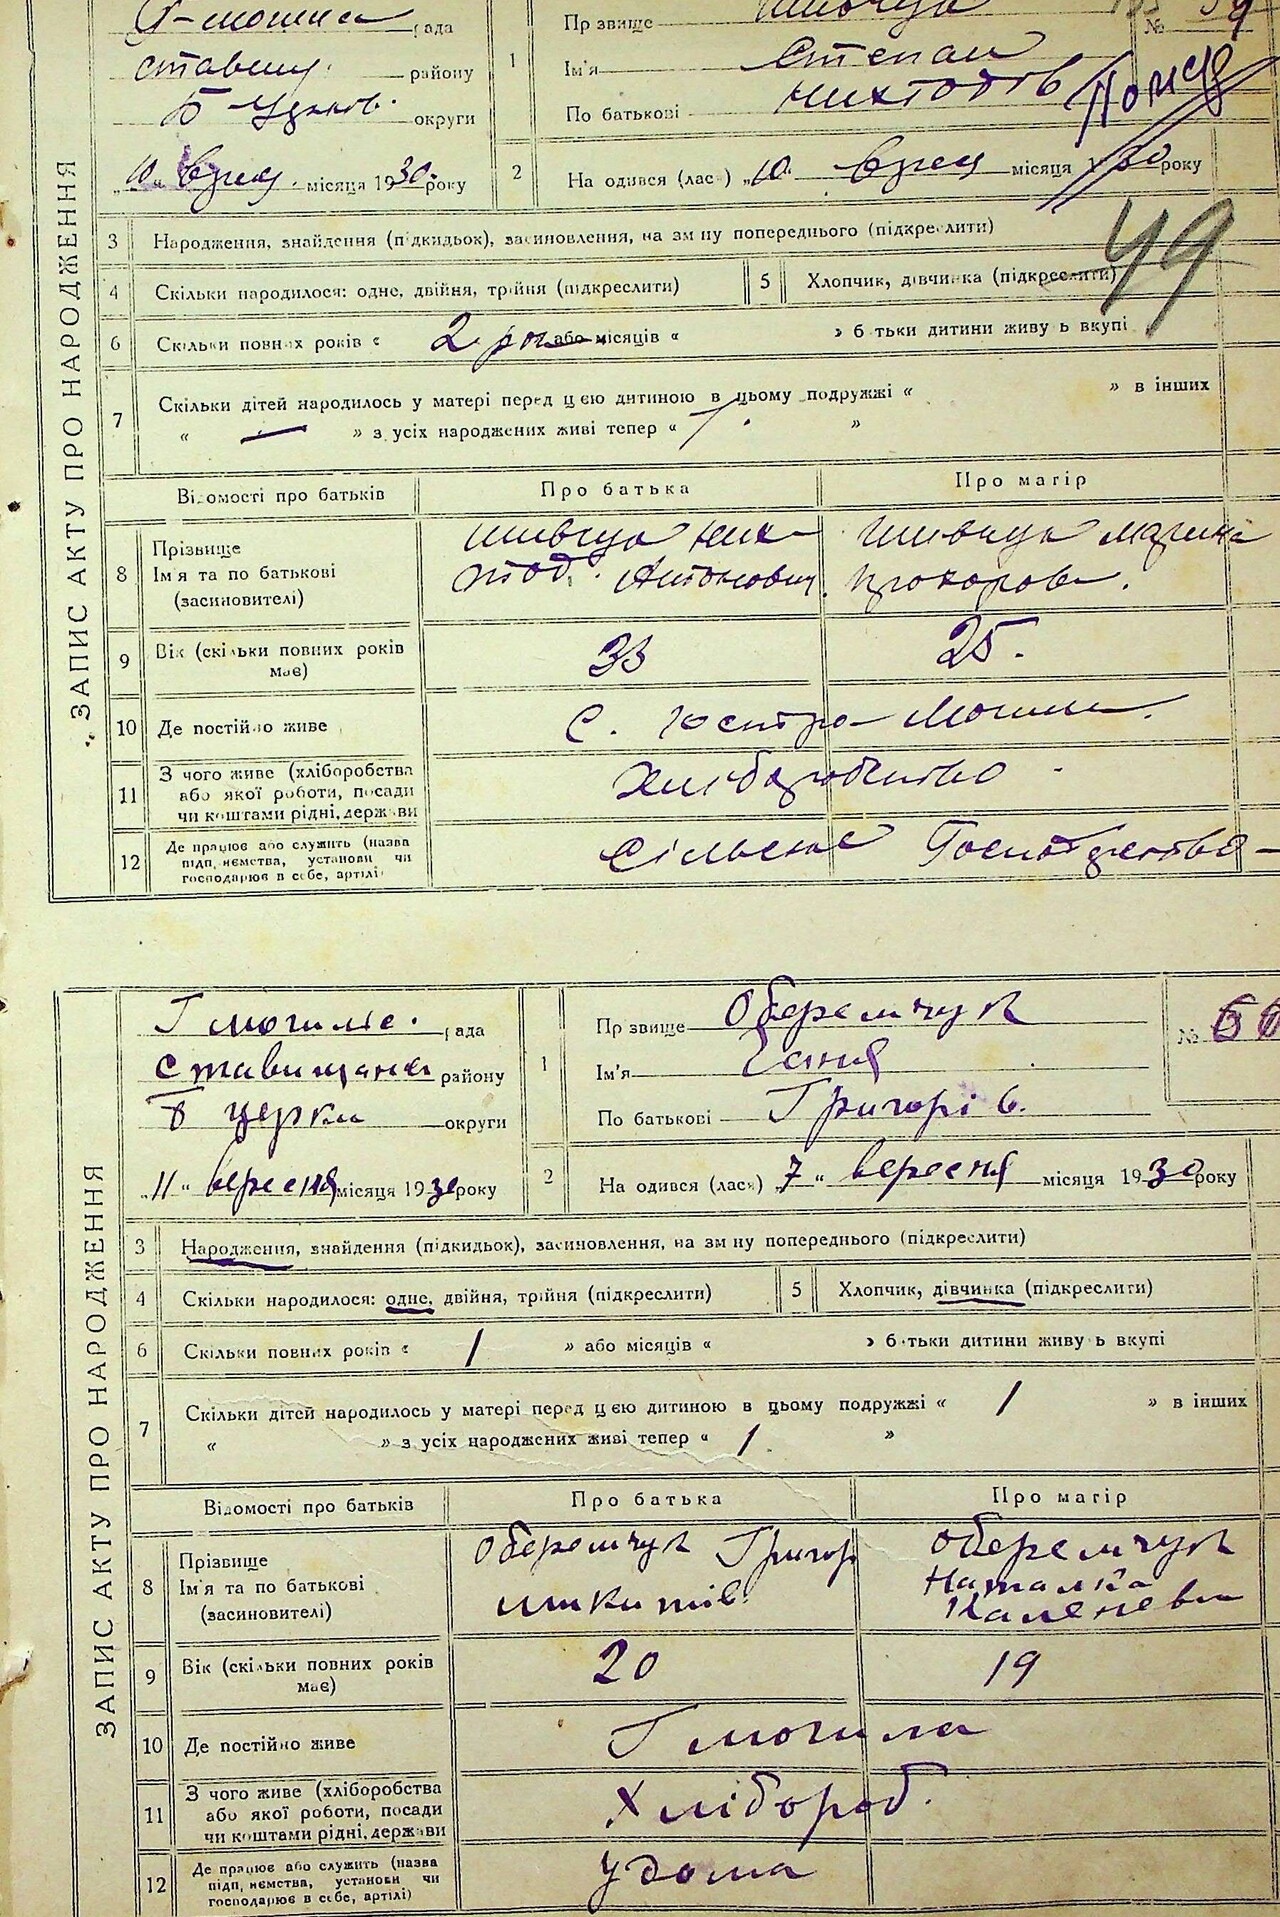 рада
Прізвище
№
ставищ. району
Ім'я Степан
округи
По батькові
„10„ місяця 1930 року
2 На одився (лас ) „10. місяця 30 року
3 Народження, знайдення (підкидьок), засиновлення, на зм ну попереднього (підкреслити)
49
4 Скільки народилося: одне, двійня, трійня (підкреслити)
5 Хлопчик, дівчинка (підкреслити)
6 Скільки повних років « 2 або місяців « » б тьки дитини живу ь вкупі
7 Скільки дітей народилось у матері перед цією дитиною в цьому подружжі « » в інших
« — » з усіх народжених живі тепер « »
Відомості про батьків Про батька Про матір
8 Прізвище
Ім'я та по батькові Антонович. Прохорова.
(засиновителі)
9 Вік (скільки повних років має) 33 25.
10 Де постійно живе с.
11 З чого живе (хліборобства або якої роботи, посади чи коштами рідні, держави Хліборобство
12 Де працює або служить (назва підприємства, установи чи господарює в себе, артілі) сільське Господарство
ЗАПИС АКТУ ПРО НАРОДЖЕННЯ
Г могилів. рада
1 Пр звище Оберемчук
№
Ставищанск району
Ім'я Ганя
Б церкви округи
По батькові Григорів.
„11„ вересня місяця 1930 року
2 На одився (лася) 7 „ вересня місяця 1930 року
3 Народження, знайдення (підкидьок), засиновлення, на зм ну попереднього (підкреслити)
4 Скільки народилося: одне, двійня, трійня (підкреслити)
5 Хлопчик, дівчинка (підкреслити)
6 Скільки повних років « 1 » або місяців « » б тьки дитини живу ь вкупі
7 Скільки дітей народилось у матері перед цією дитиною в цьому подружжі « 1 » в інших
« » з усіх народжених живі тепер « 1. »
Відомості про батьків Про батька Про матір
8 Прізвище Оберемчук Григор Оберемчук
Ім'я та по батькові Микитів. Наталка
(засиновителі) Каленевна
9 Вік (скільки повних років має) 20 19
10 Де постійно живе Г могила
11 З чого живе (хліборобства або якої роботи, посади чи коштами рідні, держави Хлібороб.
12 Де працює або служить (назва підприємства, установи чи господарює в себе, артілі) удома
ЗАПИС АКТУ ПРО НАРОДЖЕННЯ